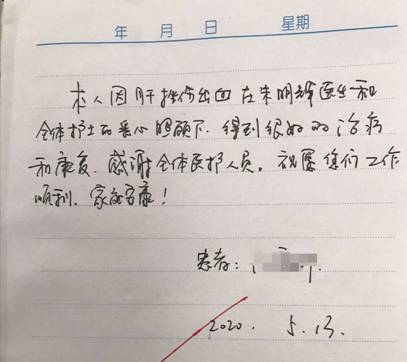 年 月 日 星期
本人因肝挫伤出血在朱明辉医生和
全体护士的悉心照顾下.得到很好的治疗
和康复.感谢全体医护人员.祝愿你们工作
顺利.家庭安康!
患者:
2020. 5.13.